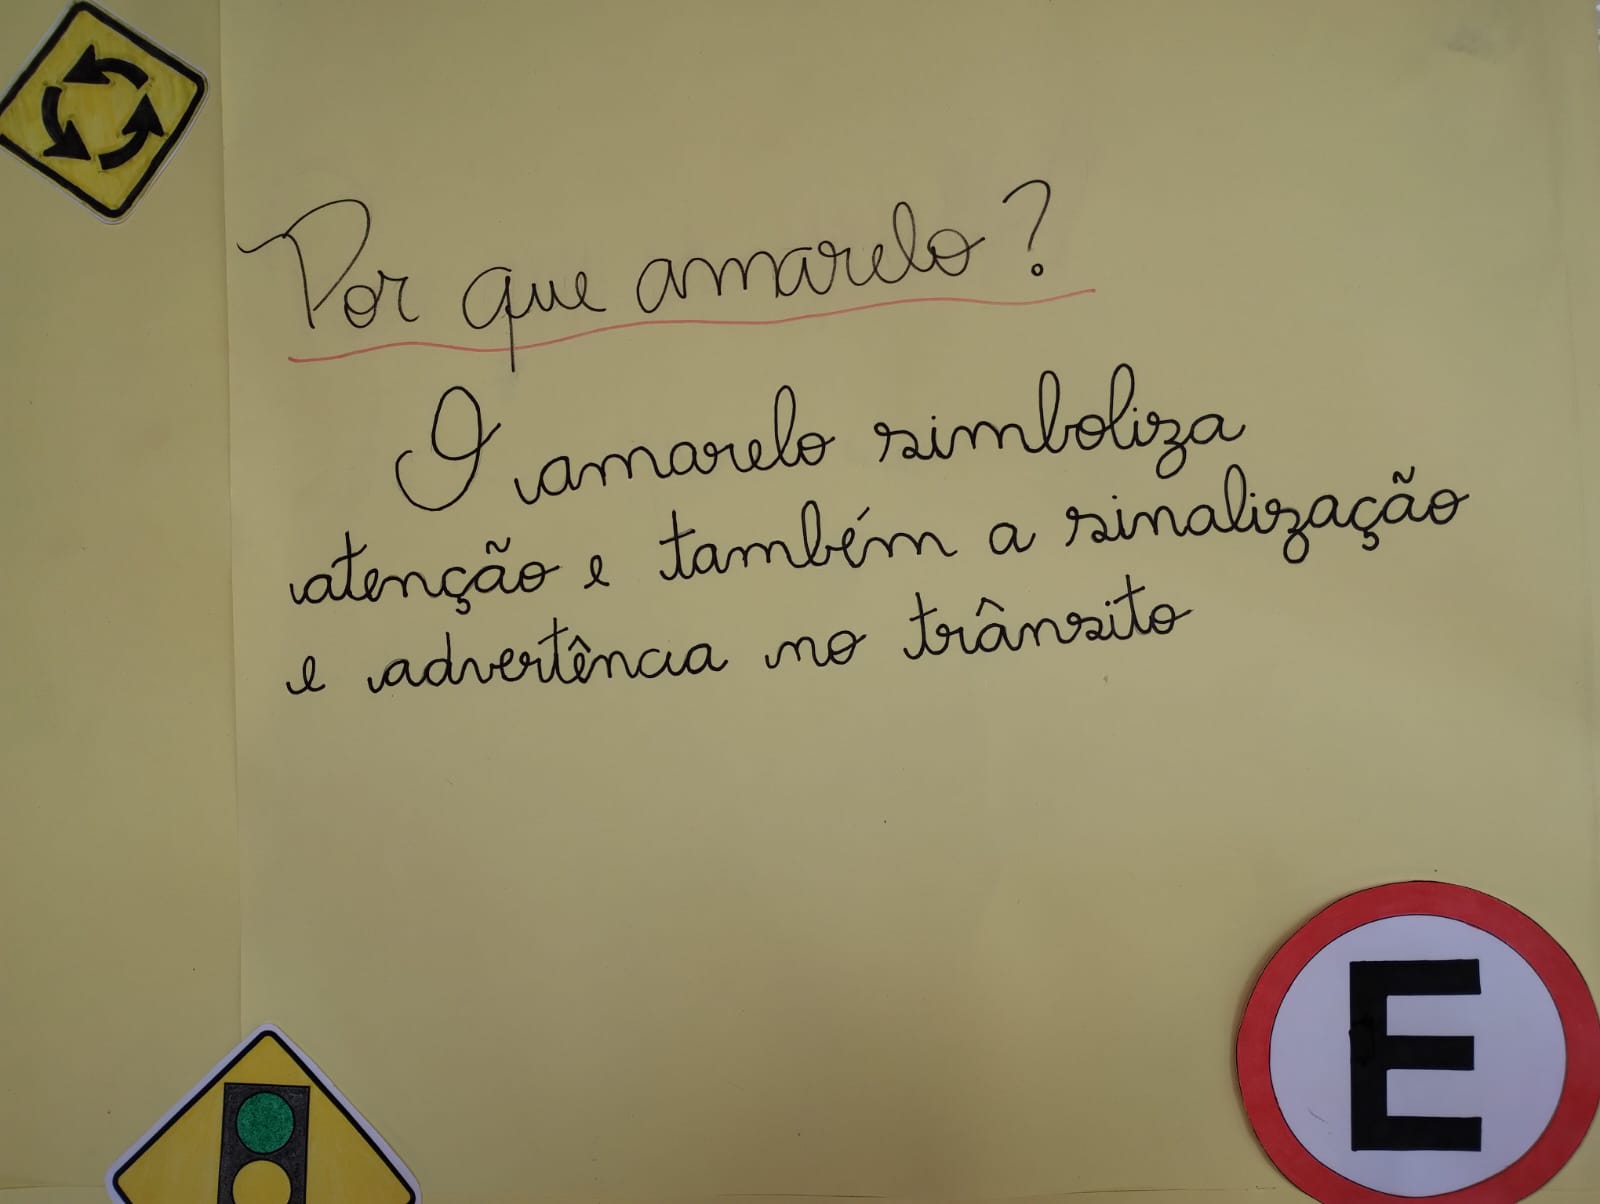 Por que amarelo?
O amarelo simboliza
atenção e também a sinalização
e advertência no trânsito
E